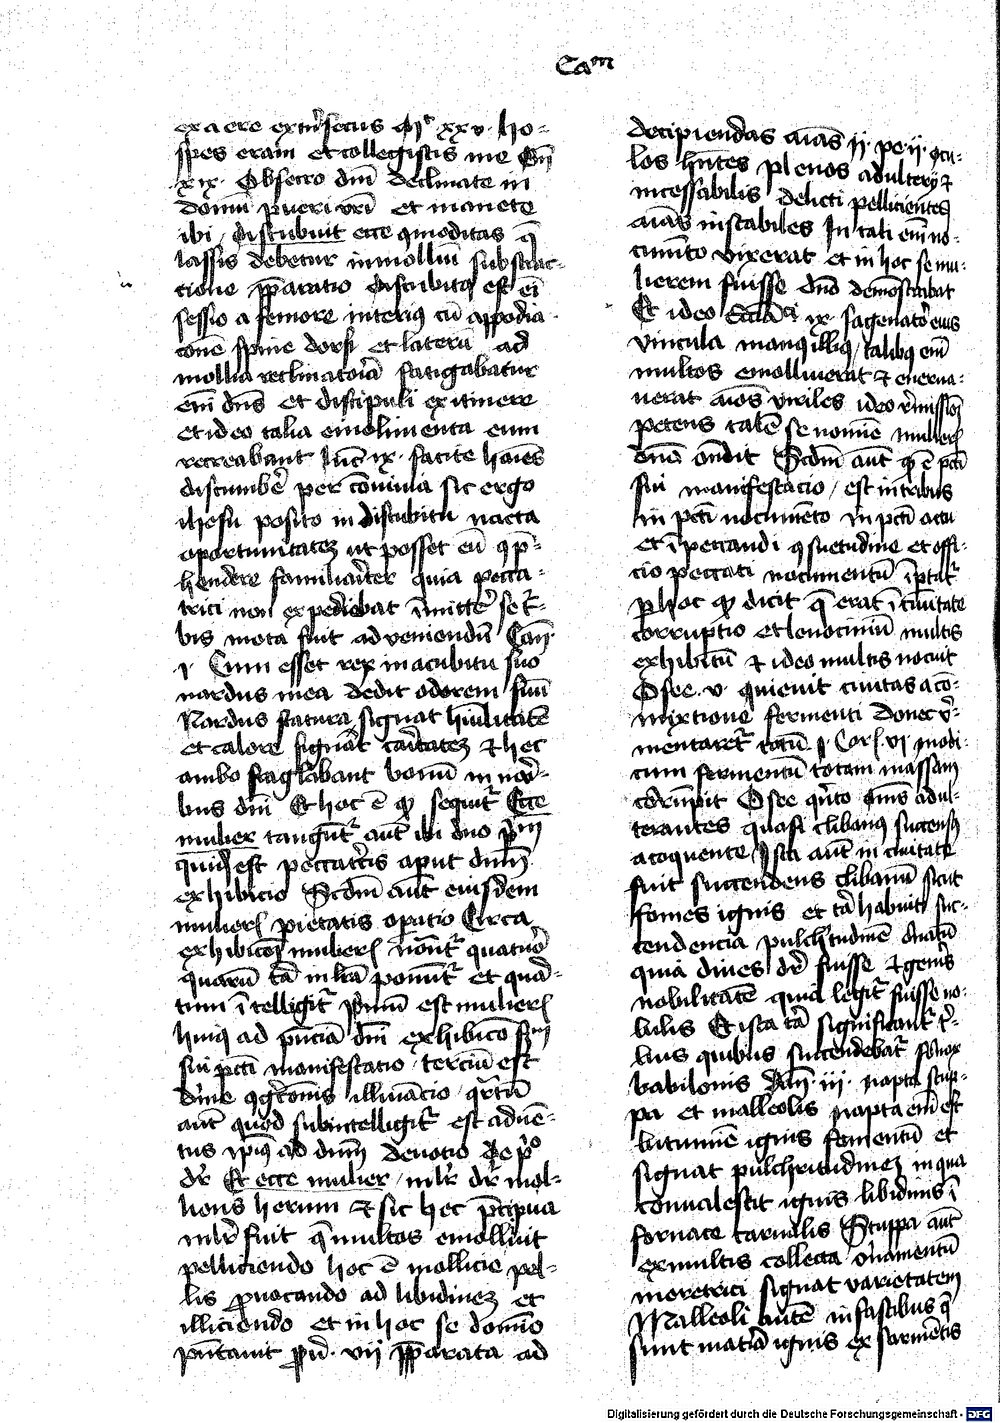 Cam
ex aere extrinsecus Mt xxv. ho-
spes eram et collegistis me Gen
xix. Obsecro dni declinate in
domum pueri vri et manete
ibi / discubuit ecce qmoditas q
lassis debetur in mollium substrac-
tione pparatio discubitus est ei
sessio a femore interius cu appodia
conem spine dorsi et laterum ad
mollia reclinatoria fatigabatur
em dns et discipuli ex itinere
et ideo talia emolimenta eum
recreabant Luc ix. facite homies
discumbere per comuia sic ergo
ihesu posito in discubitu nacta
oportunitatem ut posset eum qp-
hendere familiariter quia pecca-
trici non expediebat imittere se tur-
bis mota fuit ad veniendum Can
i Cum esset rex in acubitu suo
nardus mea dedit odorem suum
Nardus statura signat humilitatem
et calore signat caritatem et hec
ambo flaglabant bonum in nari-
bus dni Et hoc e quod sequitur Ecce
mulier tanguntur aut ibi duo primum
quid est peccatricis aput dnm
exhibicio Scdm aut eiusdem
mulieris pietatis opatio Circa
exhibicoem mulieris notantur quatuor
quorum tria in lra ponuntur et quar-
tum intelligitur primum est mulieris
huius ad pnciam dni exhibico scdm
sui pcti manifestatio / tercium est
divine cognitionis illuminacio / quartum
aut quod subintelligitur est adven-
tus ipius ad dnm devotio De primo
dr Et ecce mulier / mulier dr mol-
liens herum et sic hec precipua
mulier fuit q multos emolliuit
pelliciendo hoc e mollicie pel-
lis provocando ad libidinem et
illiciendo et in hoc se domino
pntauit prov. vii preparata ad
decipiendas aias ii pe ii ocu-
los hntes plenos adulterii et
incessabilis delicti pellicientes
aias instabiles In tali em no-
cumento vixerat et in hoc se mu-
lierem fuisse dno demostrabat
Et ideo Ecclastici ix. sagenatorum eius
vincula manus illius / talibus em
multos emolliuerat et enerua-
uerat aios viriles ideo remissioem
petens talem se nomie mulieris
dno ondit Scdm aut quod e pcti
sui manifestacio / est in tribus
in pcti nocumento in pcti actu
et in peccandi qsuetudine et offi-
cio peccati nocumentum importatur
per hoc quod dicit q erat in ciuitate
corruptio et lenocinium multis
exhibitum et ideo multis nocuit
Osee v. quieuit ciuitas a com-
mixtione fermenti donec fer-
mentaretur totum i Cor vi modi-
cum fermentum totam massam
corrumpit Osee qnto oms adul-
terantes quasi clibanus succensus
a coquente / Ista aut in ciuitate
fuit succendens clibanum sicut
fomes ignis et tria habuit suc-
cendencia pulchritudinem ornatum
quia diues dr fuisse et generis
nobilitatem quia legitur fuisse no-
bilis Et ista tria significantur tri-
bus quibus succendebatur fornax
babilonis Dan. iii. napta stup-
pa et malleolis napta em est
bituminem ignis fomentum et
signat pulchritudinem in qua
conualescit ignis libidinis in
fornace carnalis Stuppa aut
ex multis collecta ornamentum
meretrici signat varietatem
Malleoli autem in fascibus q
sunt materia ignis ex sarmentis
Digitalisierung gefördert durch die Deutsche Forschungsgemeinschaft - DFG